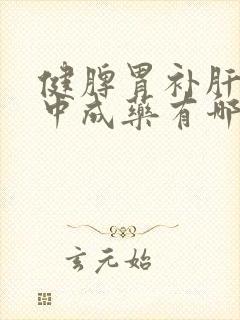 健脾胃补肝
中成药有哪
玄元始